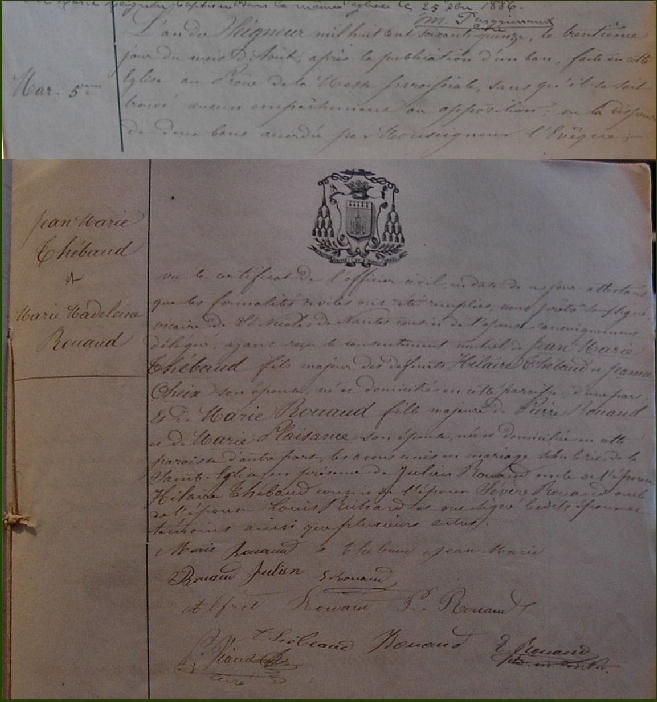 25
1886.
L'an du Seigneur mil huit cent soixante quinze, le trentième
jour du mois d'Août, après la publication d'un ban, faite en cette
Eglise au Prône de la Messe paroissiale, sans qu'il se soit
trouvé aucun empêchement ou opposition; vu la dispense
de deux bans accordée par Monseigneur l'Evêque;
Mar. 5
Jean Marie
Thébaud
et
Marie Madeleine
Rouaud
vu le certificat de l'officier civil, en date de ce jour attestant
que les formalités civiles ont été remplies, nous prêtre soussigné
vicaire de St Nicolas de Nantes cousin de l'épouse
délégué, ayant reçu le consentement mutuel de Jean Marie
Thébaud fils majeur des défunts Hilaire Thébaud et Jeanne
son épouse, né et domicilié en cette paroisse, d'une part,
Et de Marie Rouaud fille majeure de Pierre Rouaud
et de Marie Plaisance son épouse, née et domiciliée en cette
paroisse d'autre part, les avons unis en mariage selon le rit de la
Sainte Eglise, en présence de Julien Rouaud oncle de l'épouse
Hilaire Thébaud de l'époux Sévère Rouaud oncle
de l'épouse Louis
ainsi que plusieurs autres.
Marie Rouaud Jean Marie
Rouaud Julien Rouaud
Alfred Rouaud P. Rouaud
Thébaud Rouaud Rouaud
curé